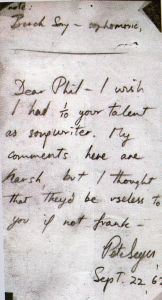 note:
Beach Song - sophomoric,
Dear Phil - I wish
I had ½ your talent
as songwriter. My
comments here are
harsh but I thought
that they'd be useless to
you if not frank -
Pete Seeger,
Sept. 22 6